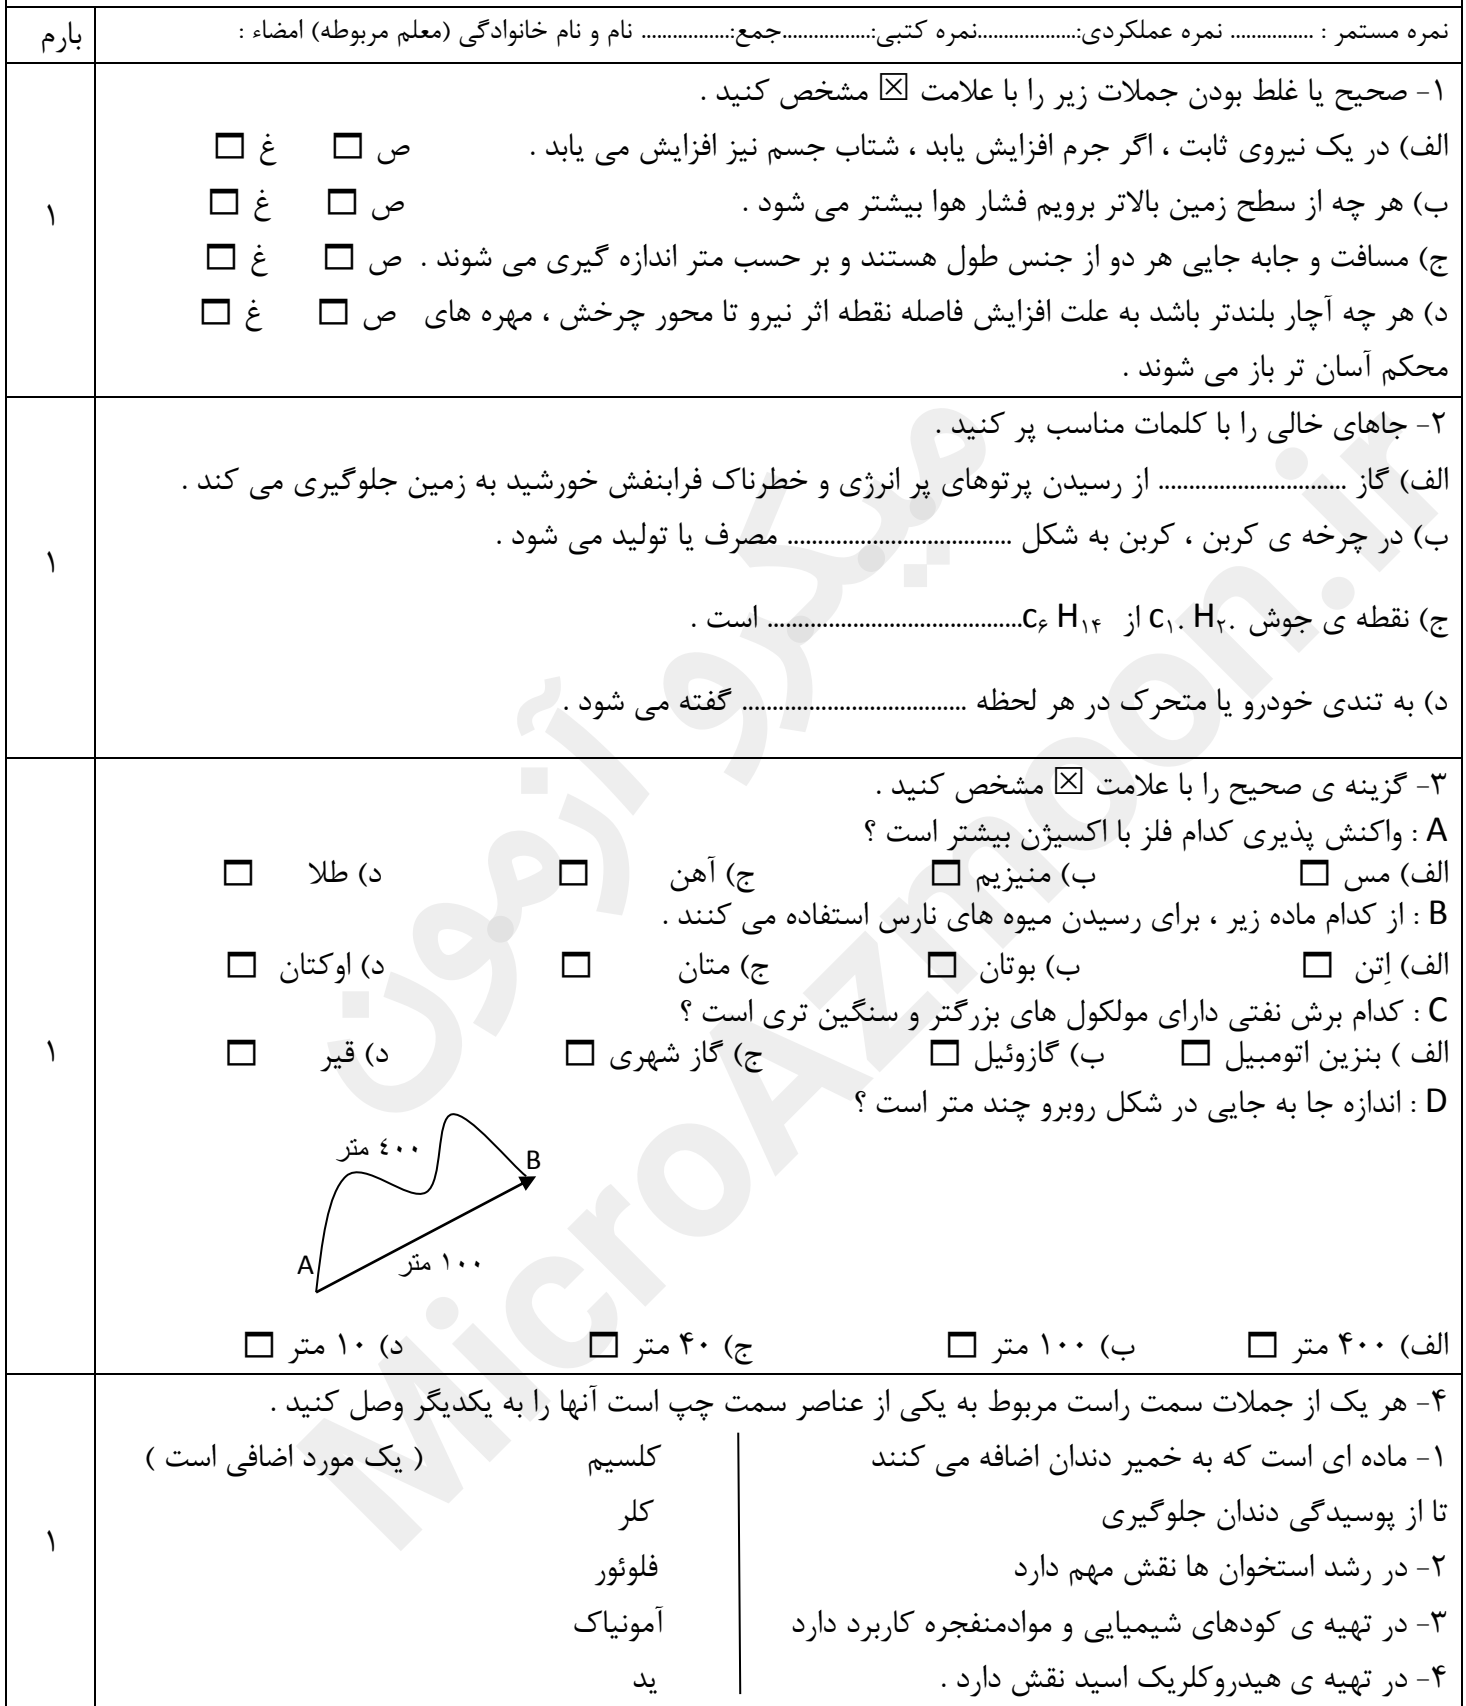 نمره مستمر : ................ نمره عملکردی:...................نمره کتبی:.................جمع:................. نام و نام خانوادگی (معلم مربوطه) امضاء : بارم
۱- صحیح یا غلط بودن جملات زیر را با علامت ☒ مشخص کنید .
الف) در یک نیروی ثابت ، اگر جرم افزایش یابد ، شتاب جسم نیز افزایش می یابد . ص □ غ □
ب) هر چه از سطح زمین بالاتر برویم فشار هوا بیشتر می شود . ص □ غ □
۱
ج) مسافت و جابه جایی هر دو از جنس طول هستند و بر حسب متر اندازه گیری می شوند . ص □ غ □
د) هر چه آچار بلندتر باشد به علت افزایش فاصله نقطه اثر نیرو تا محور چرخش ، مهره های ص □ غ □
محکم آسان تر باز می شوند .
۲- جاهای خالی را با کلمات مناسب پر کنید .
الف) گاز ............................... از رسیدن پرتوهای پر انرژی و خطرناک فرابنفش خورشید به زمین جلوگیری می کند .
ب) در چرخه ی کربن ، کربن به شکل ..................................... مصرف یا تولید می شود .
۱
ج) نقطه ی جوش c۱۰ H۲۰ از c۶ H۱۴.......................................... است .
د) به تندی خودرو یا متحرک در هر لحظه ..................................... گفته می شود .
۳- گزینه ی صحیح را با علامت ☒ مشخص کنید .
A : واکنش پذیری کدام فلز با اکسیژن بیشتر است ؟
الف) مس □ ب) منیزیم □ ج) آهن □ د) طلا □
B : از کدام ماده زیر ، برای رسیدن میوه های نارس استفاده می کنند .
الف) اِتن □ ب) بوتان □ ج) متان □ د) اوکتان □
C : کدام برش نفتی دارای مولکول های بزرگتر و سنگین تری است ؟
الف ) بنزین اتومبیل □ ب) گازوئیل □ ج) گاز شهری □ د) قیر □
۱
D : اندازه جا به جایی در شکل روبرو چند متر است ؟
٤٠٠ متر
B
A
١٠٠ متر
الف) ۴۰۰ متر □ ب) ۱۰۰ متر □ ج) ۴۰ متر □ د) ۱۰ متر □
۴- هر یک از جملات سمت راست مربوط به یکی از عناصر سمت چپ است آنها را به یکدیگر وصل کنید .
۱- ماده ای است که به خمیر دندان اضافه می کنند کلسیم ( یک مورد اضافی است )
تا از پوسیدگی دندان جلوگیری کلر
۱
۲- در رشد استخوان ها نقش مهم دارد فلوئور
۳- در تهیه ی کودهای شیمیایی و موادمنفجره کاربرد دارد آمونیاک
۴- در تهیه ی هیدروکلریک اسید نقش دارد . ید
میکرو آزمون
MicroAzmoon.ir